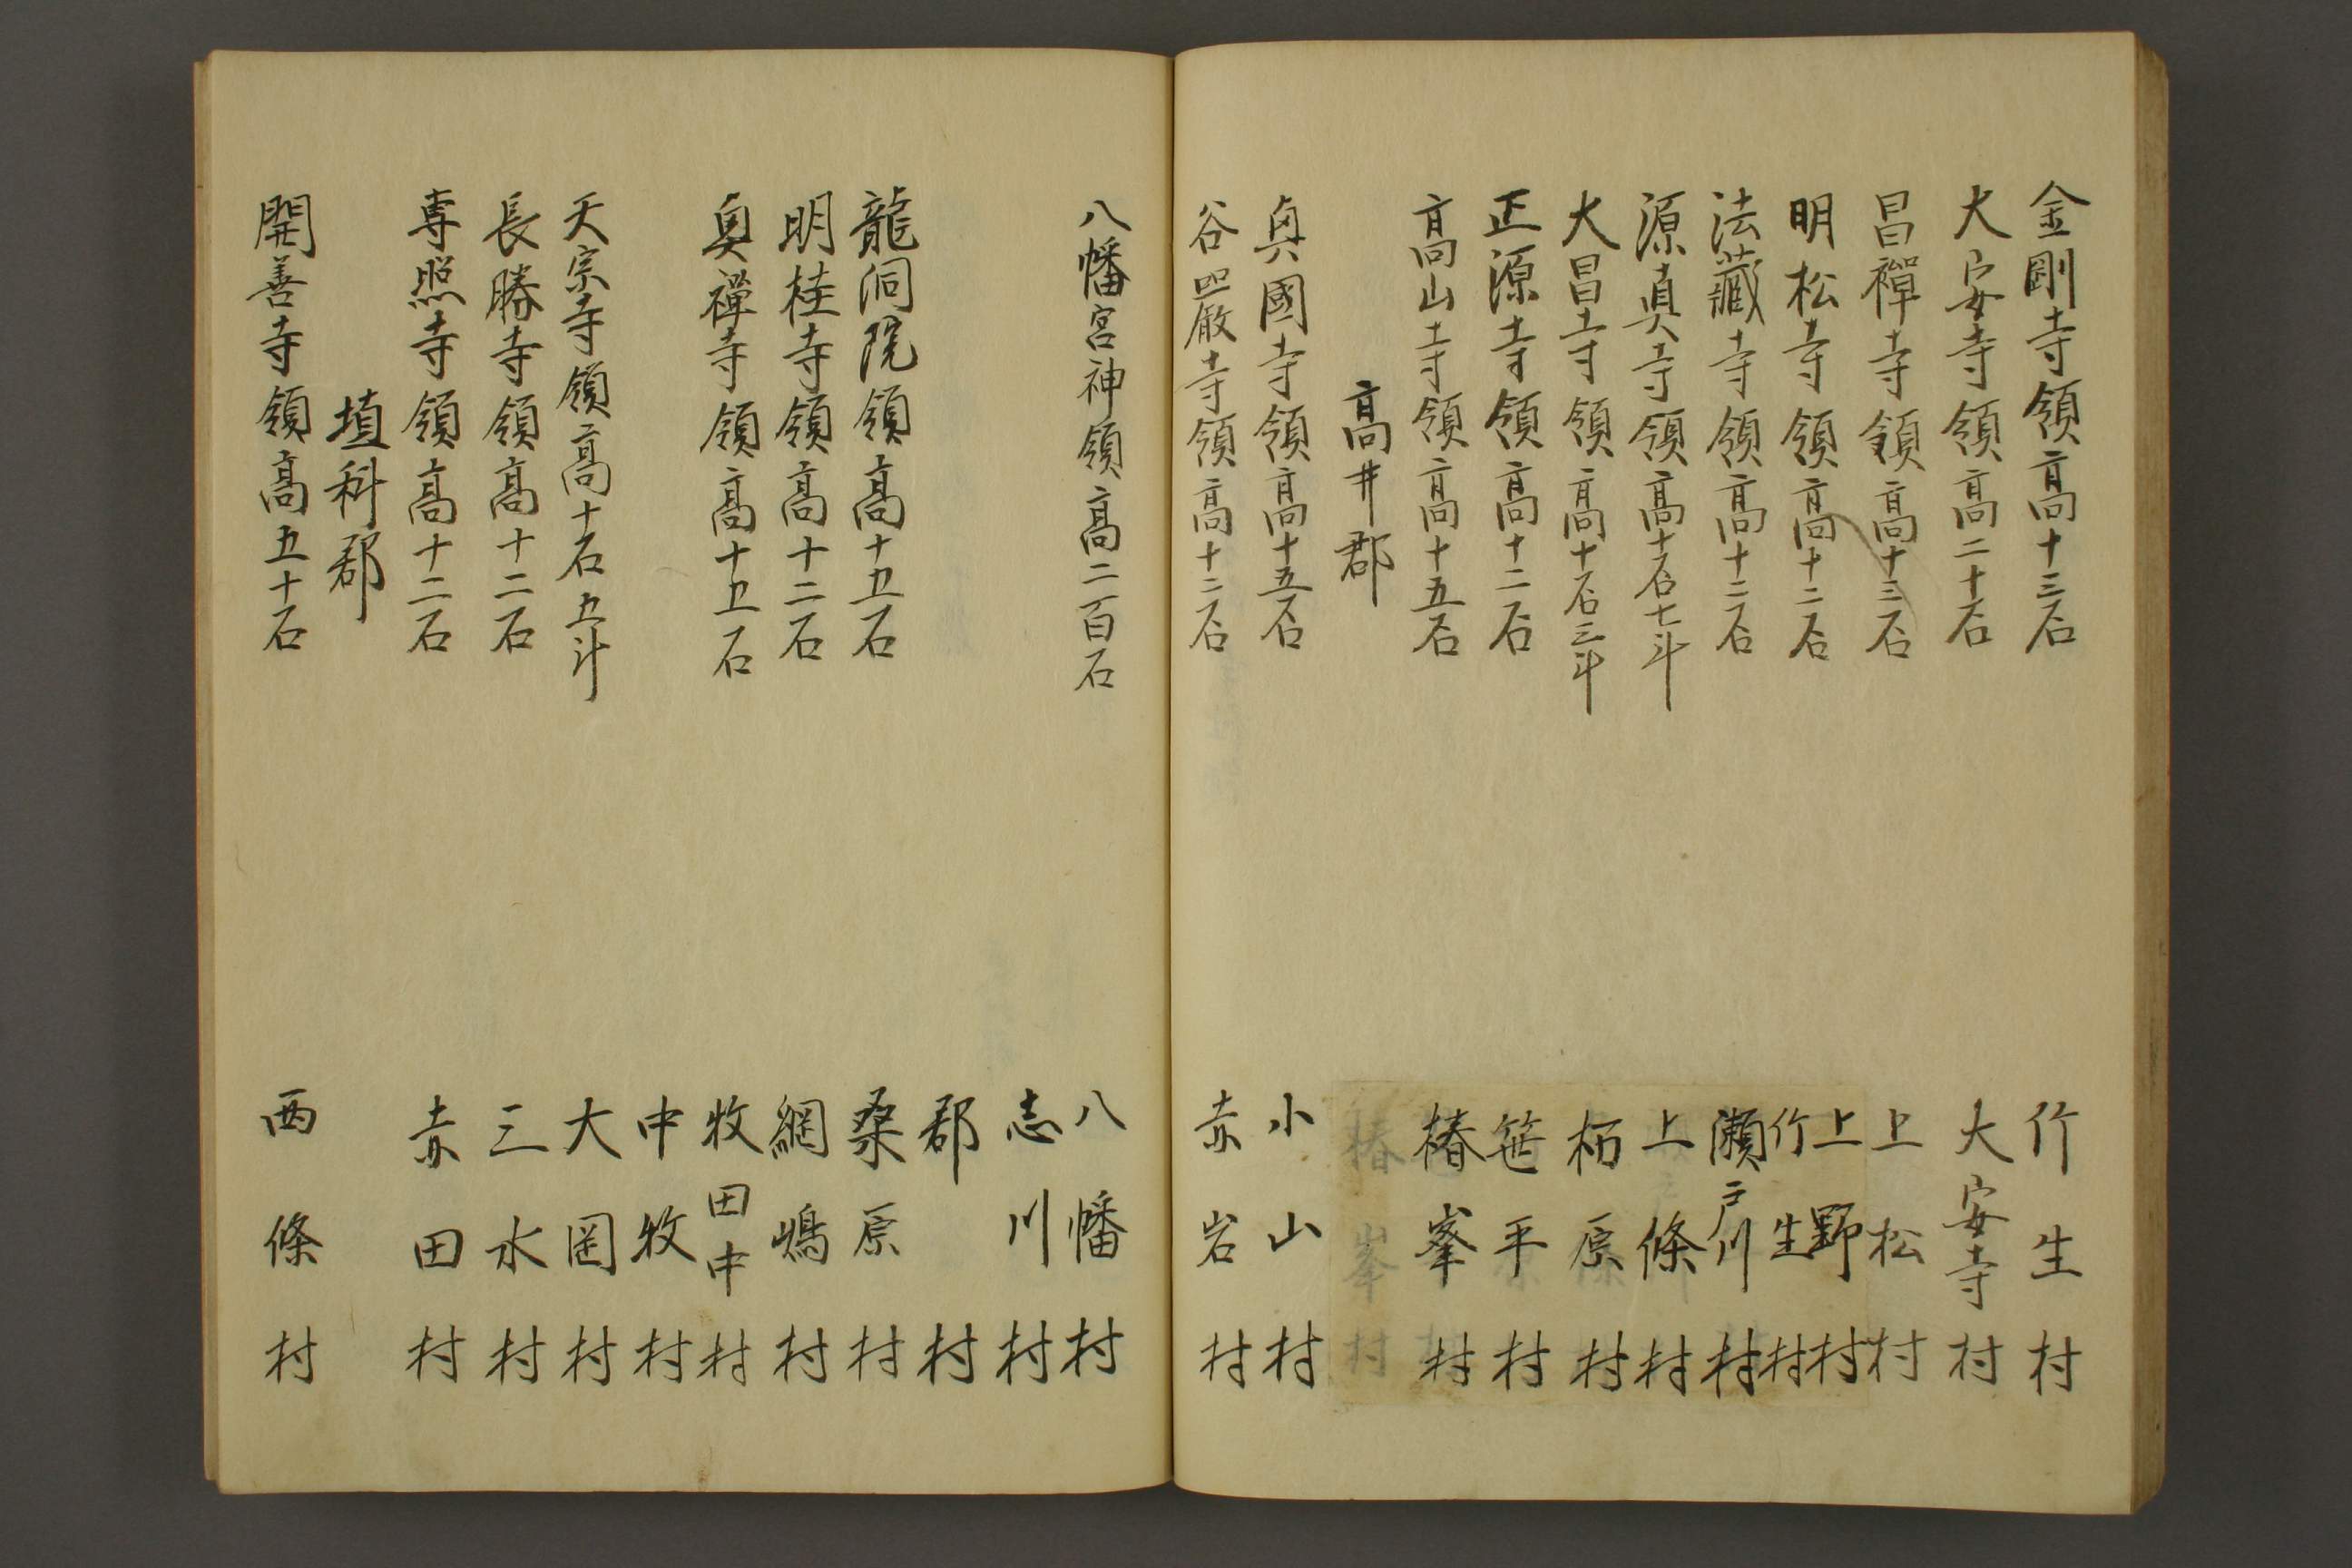 金剛寺領高十三石 竹生村
大安寺領高二十石 大安寺村
昌禅寺領高十三石 上松村
明松寺領高十二石 上野村
竹生村
法藏寺領高十二石 瀬戸川村
源真寺領高十石七斗 上條村
大昌寺領高十石三斗 栢原村
正源寺領高十二石 笹平村
高山寺領高十五石 椿峯村
高井郡
奥國寺領高十五石 小山村
谷嚴寺領高十二石 赤岩村
八幡宮神領高二百石 八幡村
志川村
郡村
龍洞院領高十五石 桑原村
明桂寺領高十二石 網嶋村
奥禅寺領高十五石 牧田中村
中牧村
天宗寺領高十石五斗 大岡村
長勝寺領高十二石 三水村
専照寺領高十二石 赤田村
埴科郡
開善寺領高五十石 西條村